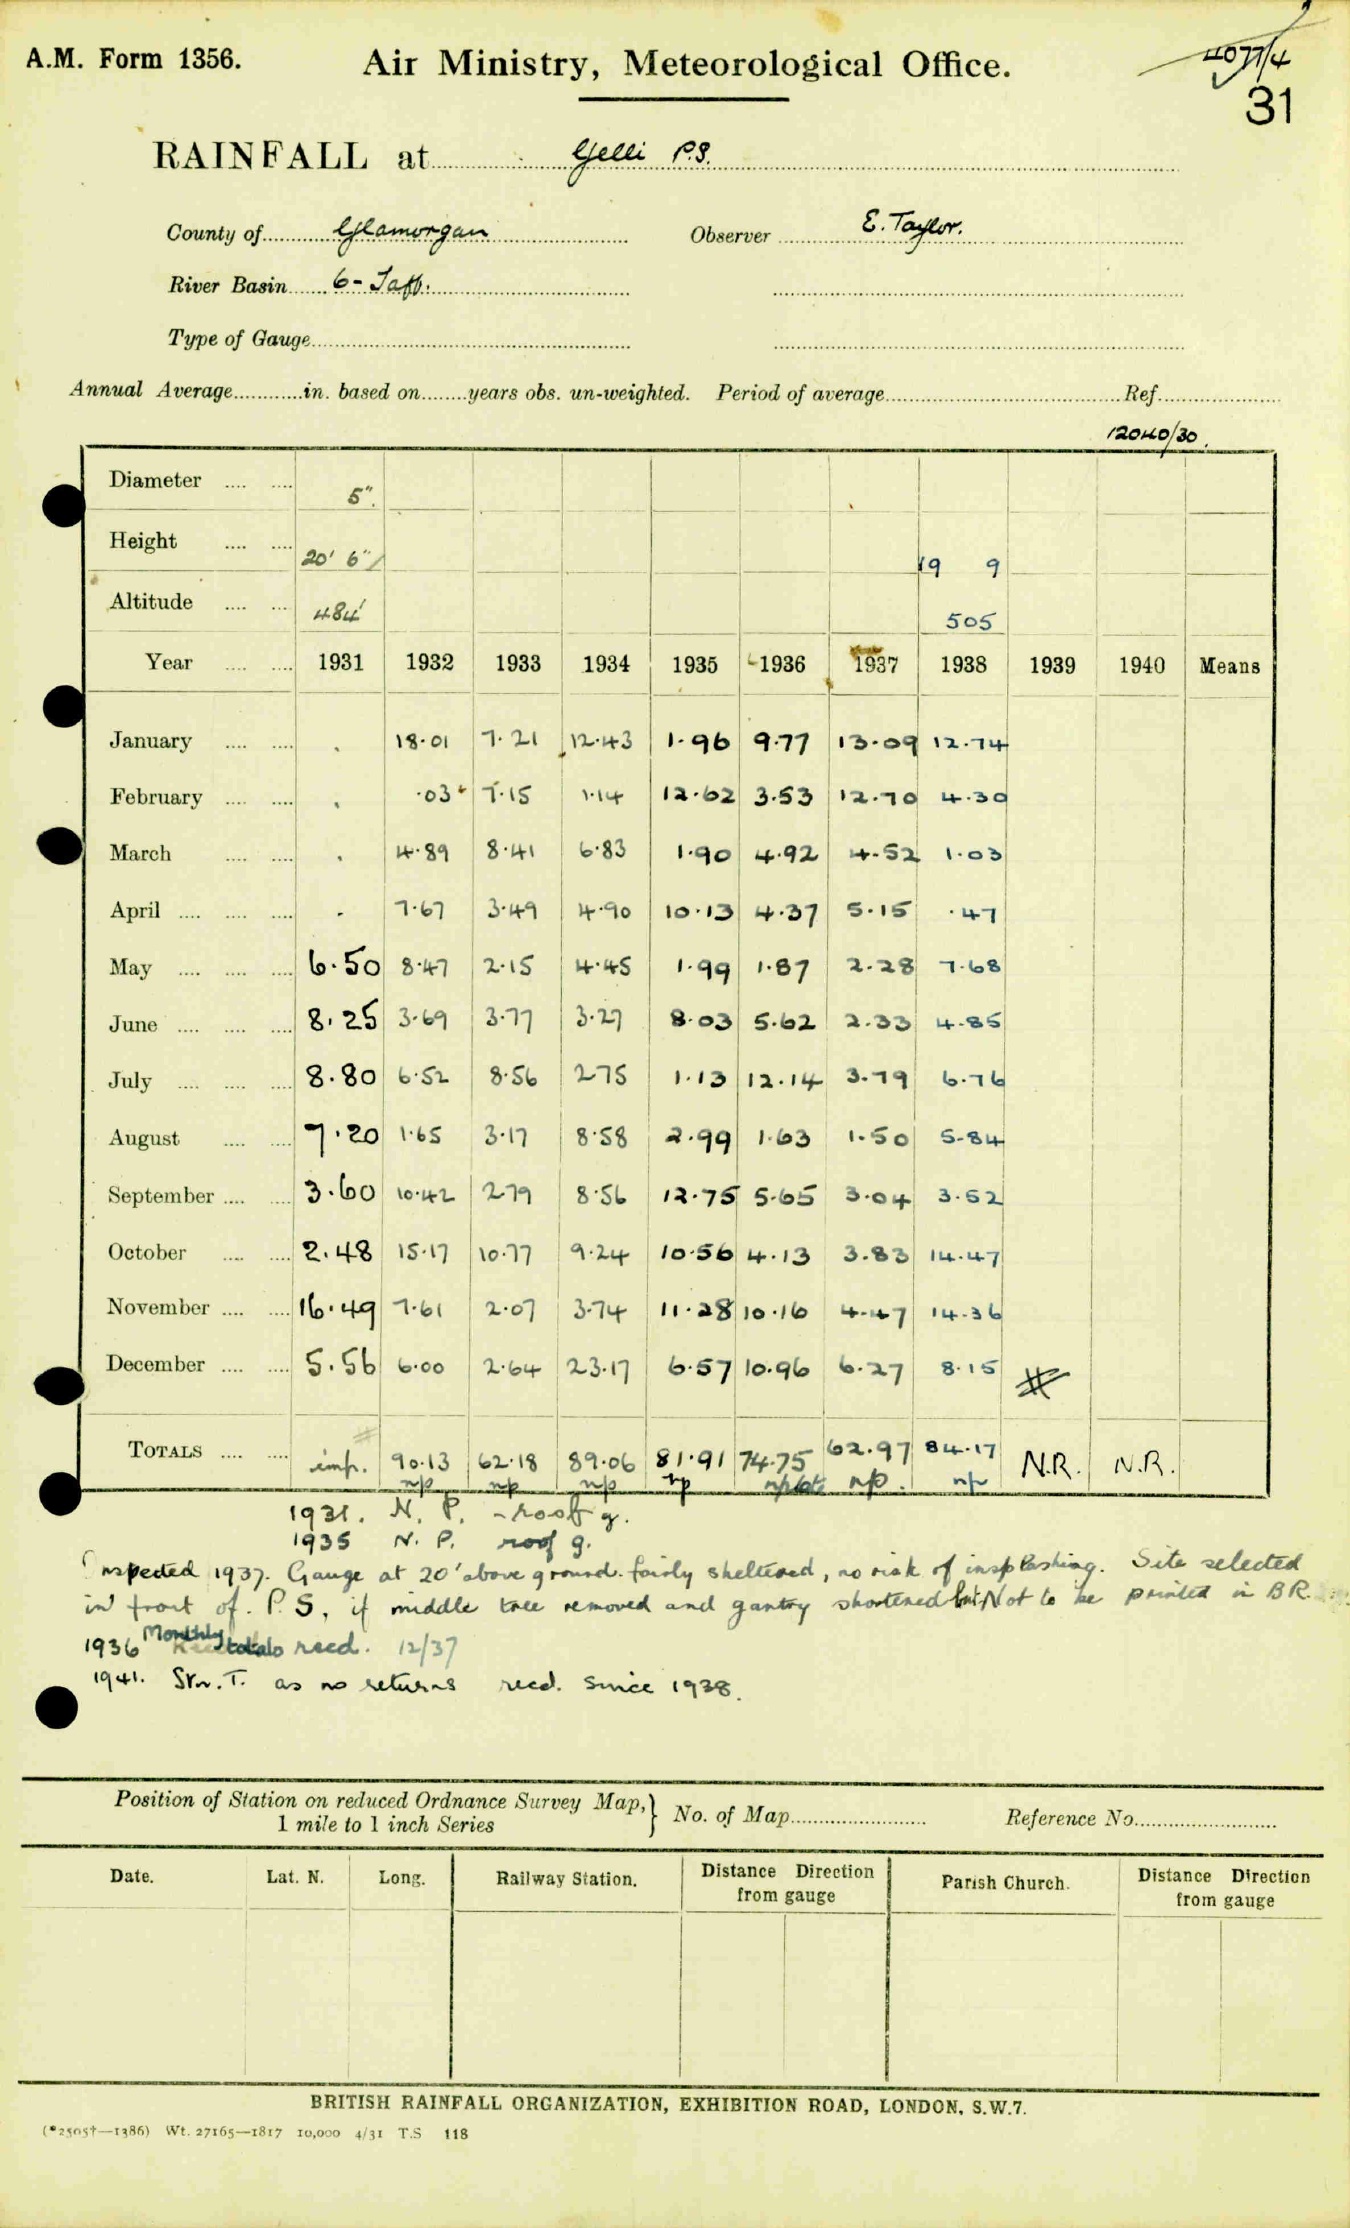 A.M. Form 1356.
Air Ministry, Meteorological Office.
4077/4
31
RAINFALL at Gelli P.S.
County of Glamorgan Observer E. Taylor.
River Basin 6 - Taff.
Type of Gauge
Annual Average in. based on years obs. un-weighted. Period of average Ref.
12040/30.
Diameter 5".
Height 20' 6" 19 9
Altitude 484' 505
Year 1931 1932 1933 1934 1935 1936 1937 1938 1939 1940 Means
January . 18.01 7.21 12.43 1.96 9.77 13.09 12.74
February . .03 7.15 1.14 12.62 3.53 12.70 4.30
March . 4.89 8.41 6.83 1.90 4.92 4.52 1.03
April . 7.67 3.49 4.90 10.13 4.37 5.15 .47
May 6.50 8.47 2.15 4.45 1.99 1.87 2.28 7.68
June 8.25 3.69 3.77 3.27 8.03 5.62 2.33 4.85
July 8.80 6.52 8.56 2.75 1.13 12.14 3.79 6.76
August 7.20 1.65 3.17 8.58 2.99 1.63 1.50 5.84
September 3.60 10.42 2.79 8.56 12.75 5.65 3.04 3.52
October 2.48 15.17 10.77 9.24 10.56 4.13 3.83 14.47
November 16.49 7.61 2.07 3.74 11.28 10.16 4.47 14.36
December 5.56 6.00 2.64 23.17 6.57 10.96 6.27 8.15 #
TOTALS imp. 90.13 62.18 89.06 81.91 74.75 62.97 84.17 N.R. N.R.
np np np np np np np
1931. N. P. - roof g.
1935 N. P. roof g.
Inspected 1937. Gauge at 20' above ground. fairly sheltered, no risk of insplashing. Site selected
in front of P.S, if middle tree removed and gantry shortened but Not to be printed in B R.
1936 Monthly totals recd. 12/37
1941. Stn. T. as no returns recd. since 1938.
Position of Station on reduced Ordnance Survey Map,
1 mile to 1 inch Series
No. of Map Reference No.
Date. Lat. N. Long. Railway Station. Distance Direction from gauge Parish Church. Distance Direction from gauge
BRITISH RAINFALL ORGANIZATION, EXHIBITION ROAD, LONDON, S.W.7.
(*2505†—1386) Wt. 27165—1817 10,000 4/31 T.S 118